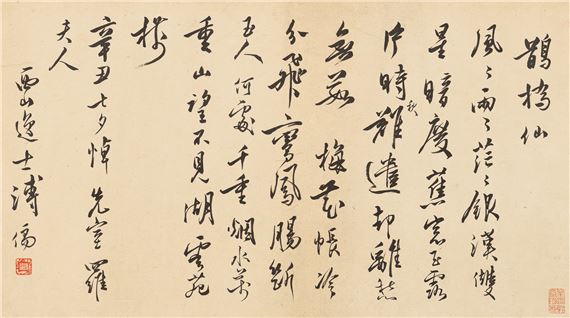 鵲橋仙
風〻雨〻茫〻銀漢雙
星暗度蕉窗玉露
片時秋難遣却離愁
無數 梅花帳冷
分飛鸞鳳腸斷
玉人何處千重烟水萬
重山望不見湖雲苑
樹
辛丑七夕悼先室羅
夫人
西山逸士溥儒